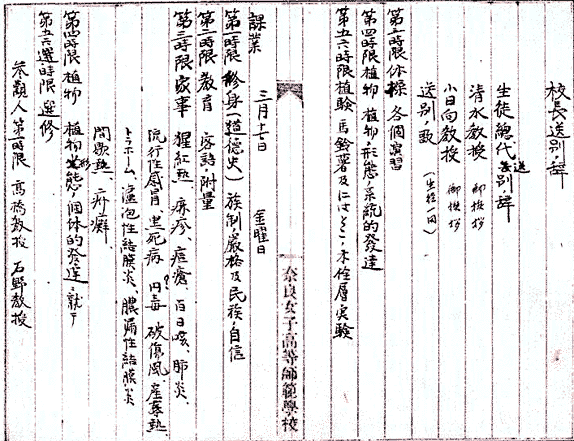 校長送別ノ辞
生徒總代送別ノ辞
清水教授 御挨拶
小日向教授 御挨拶
送別ノ歌(生徒一同)
第三時限 体操 各個演習
第四時限 植物 植物ノ形態ノ系統的發達
第五六時限 植驗 馬鈴薯及にはとこノ木栓層実驗
奈良女子高等師範學校
課業 三月十七日 金曜日
第一時限 修身(道徳史)族制ノ嚴格及民族ノ自信
第二時限 教育 附量
第三時限 家事 猩紅熱、麻疹、痘瘡、百日咳、肺炎、
流行性感冒、黒死病、丹毒、破傷風、産褥熱
トラホーム、濾泡性結膜炎、膿漏性結膜炎、
間歇熱、疥癬、
第四時限 植物 植物形態ノ個体的發達ニ就テ
第五六時限 選修
参觀人 第一時限 高橋教授 石野教授